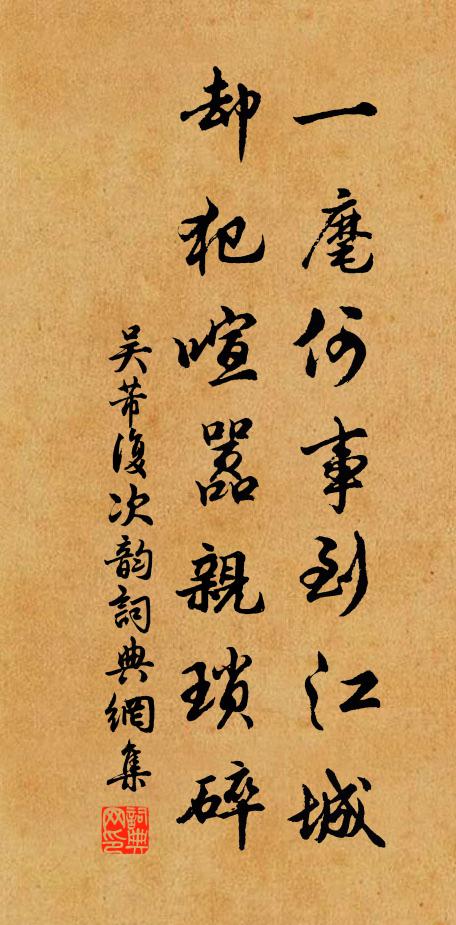 一麾何事到江城
却犯喧嚣親瑣碎
吴芾復次韵詞典網集
詞典網印